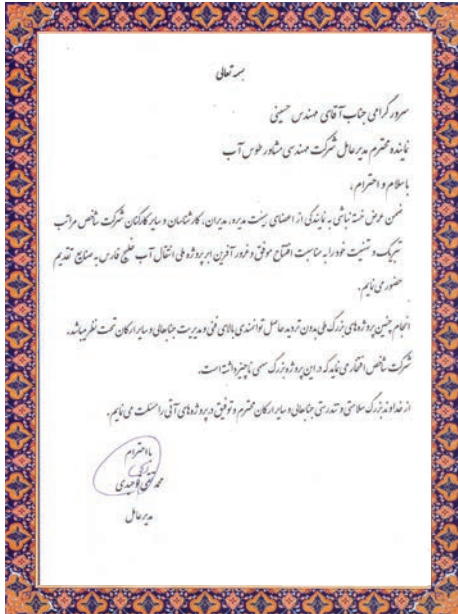 بسمه تعالی
سرور گرامی جناب آقای مهندس حسینی
نماینده محترم مدیرعامل شرکت مهندسی مشاور طوس آب
باسلام و احترام،
ضمن عرض خسته نباشی به نمایندگی از اعضای هیئت مدیره، مدیران، کارشناسان و سایر کارکنان شرکت شاخص مراتب
تبریک و تهنیت خود را به مناسبت افتتاح موفق و غرور آفرین ابر پروژه ملی انتقال آب خلیج فارس به صنایع تقدیم
حضور می نایم.
انجام چنین پروژه های بزرگ ملی بدون تردید حاصل توانمندی بالای فنی و مدیریت جنابعالی و سایر ارکان تحت نظر میباشد.
شرکت شاخص افتخار می نماید که در این پروژه بزرگ سهمی ناچیز داشته است.
از خداوند بزرگ سلامتی و تندرستی جنابعالی و سایر ارکان محترم و توفیق در پروژه های آتی را مسئلت می نایم.
بااحترام
محمد تقی توحیدی
مدیرعامل